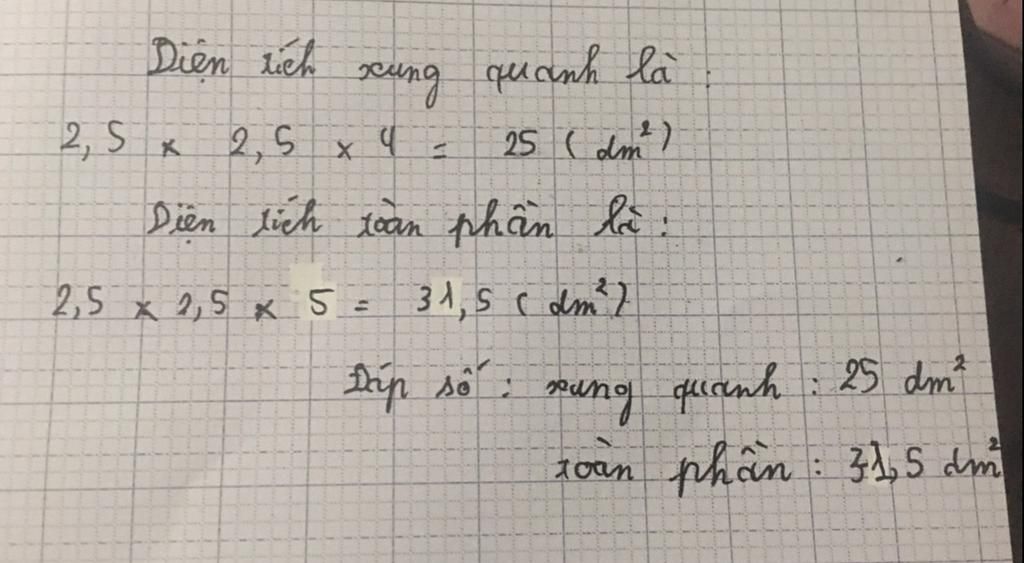 Diện tích xung quanh là :
2,5 x 2,5 x 4 = 25 ( dm²)
Diện tích toàn phần là :
2,5 x 2,5 x 5 = 31,5 ( dm²)
Đáp số : xung quanh : 25 dm²
toàn phần : 31,5 dm²